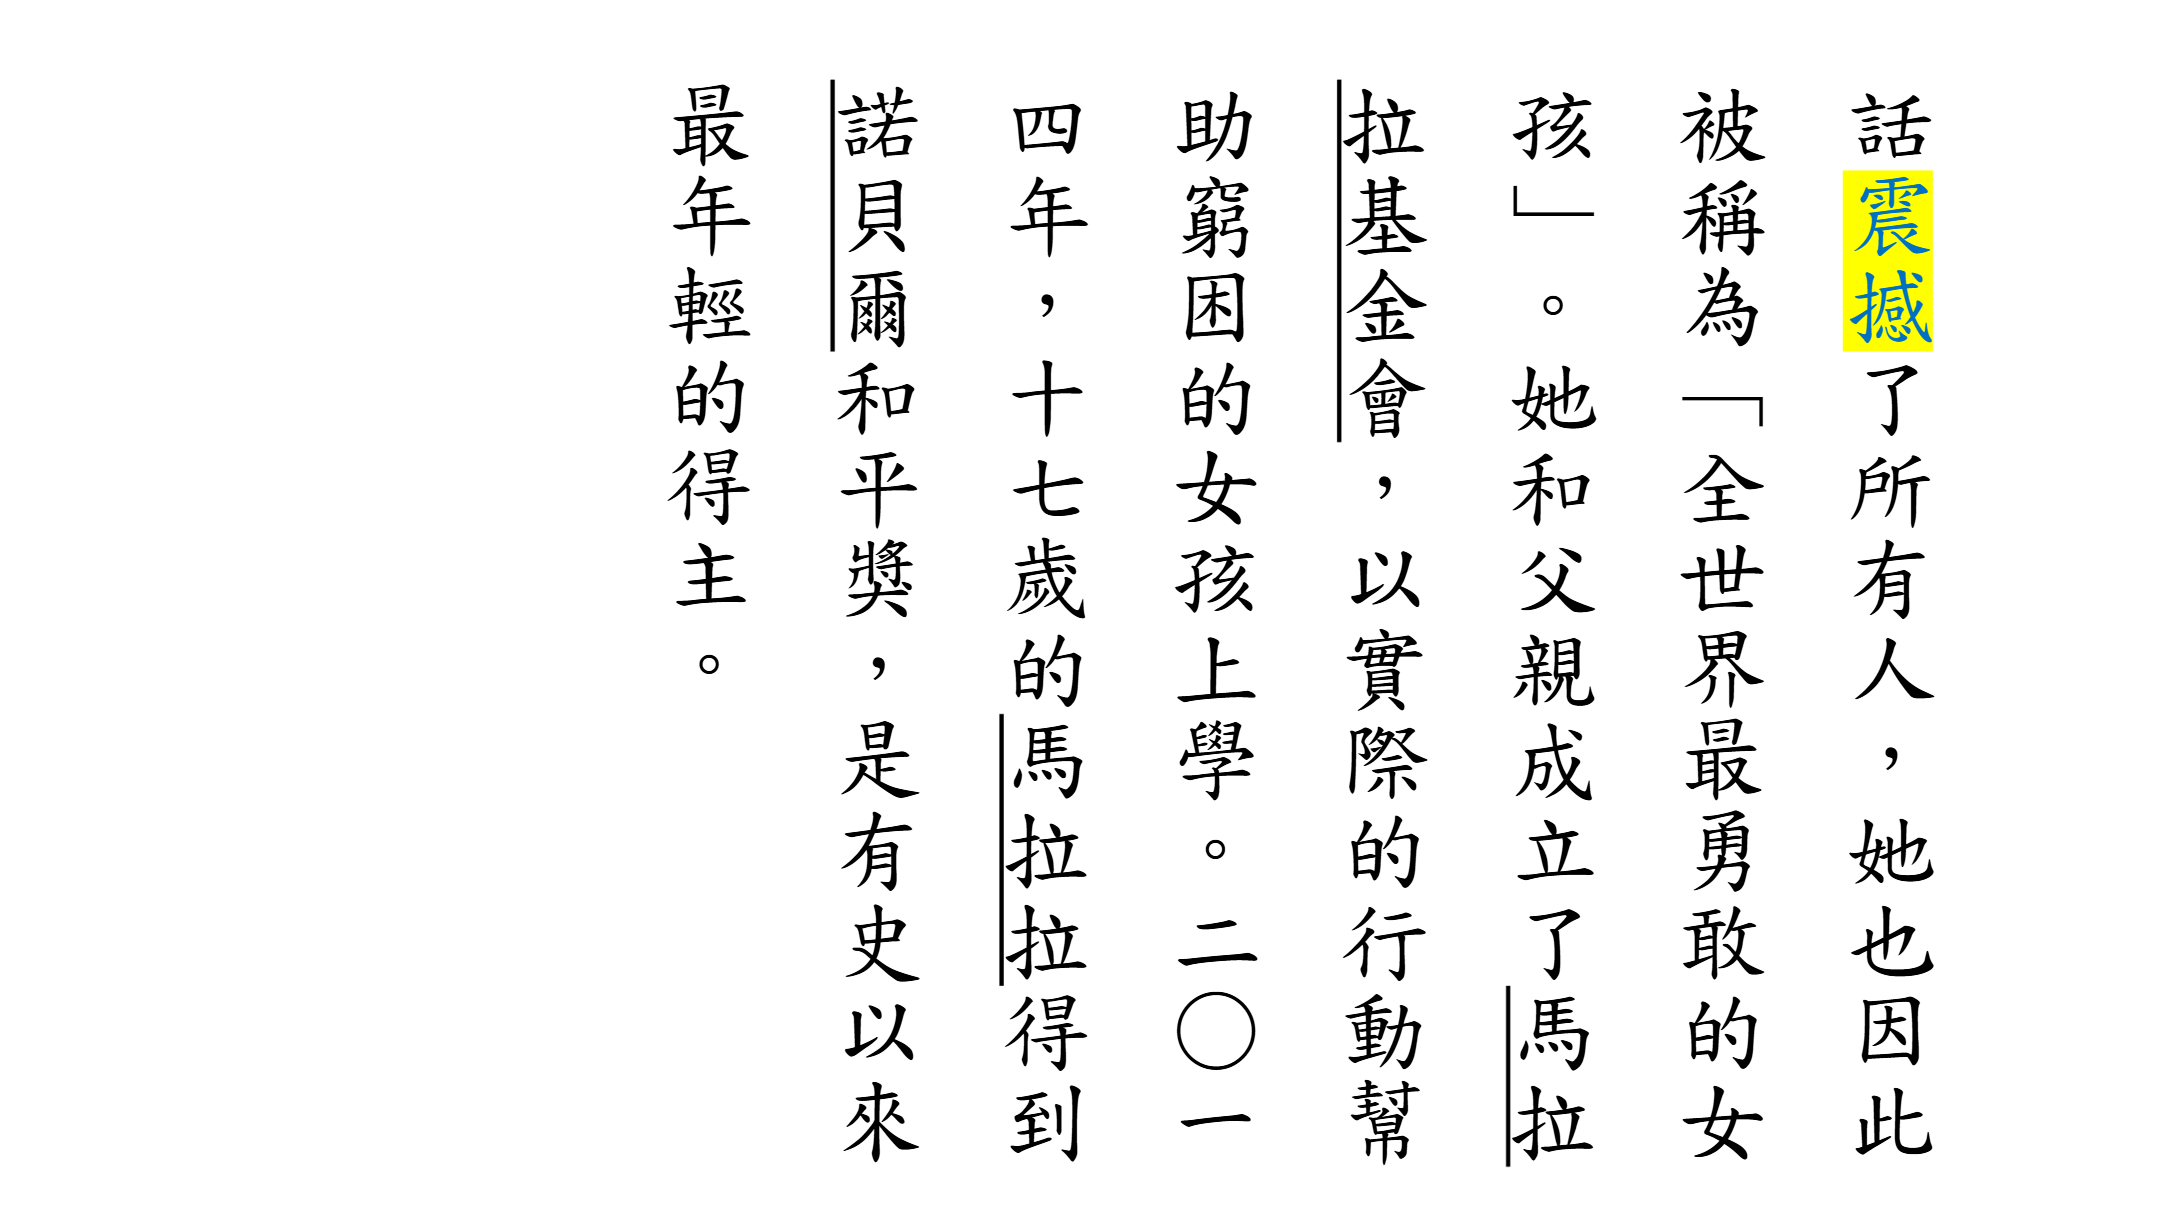 話震撼了所有人，她也因此
被稱為「全世界最勇敢的女
孩」。她和父親成立了馬拉
拉基金會，以實際的行動幫
助窮困的女孩上學。二〇一
四年，十七歲的馬拉拉得到
諾貝爾和平獎，是有史以來
最年輕的得主。